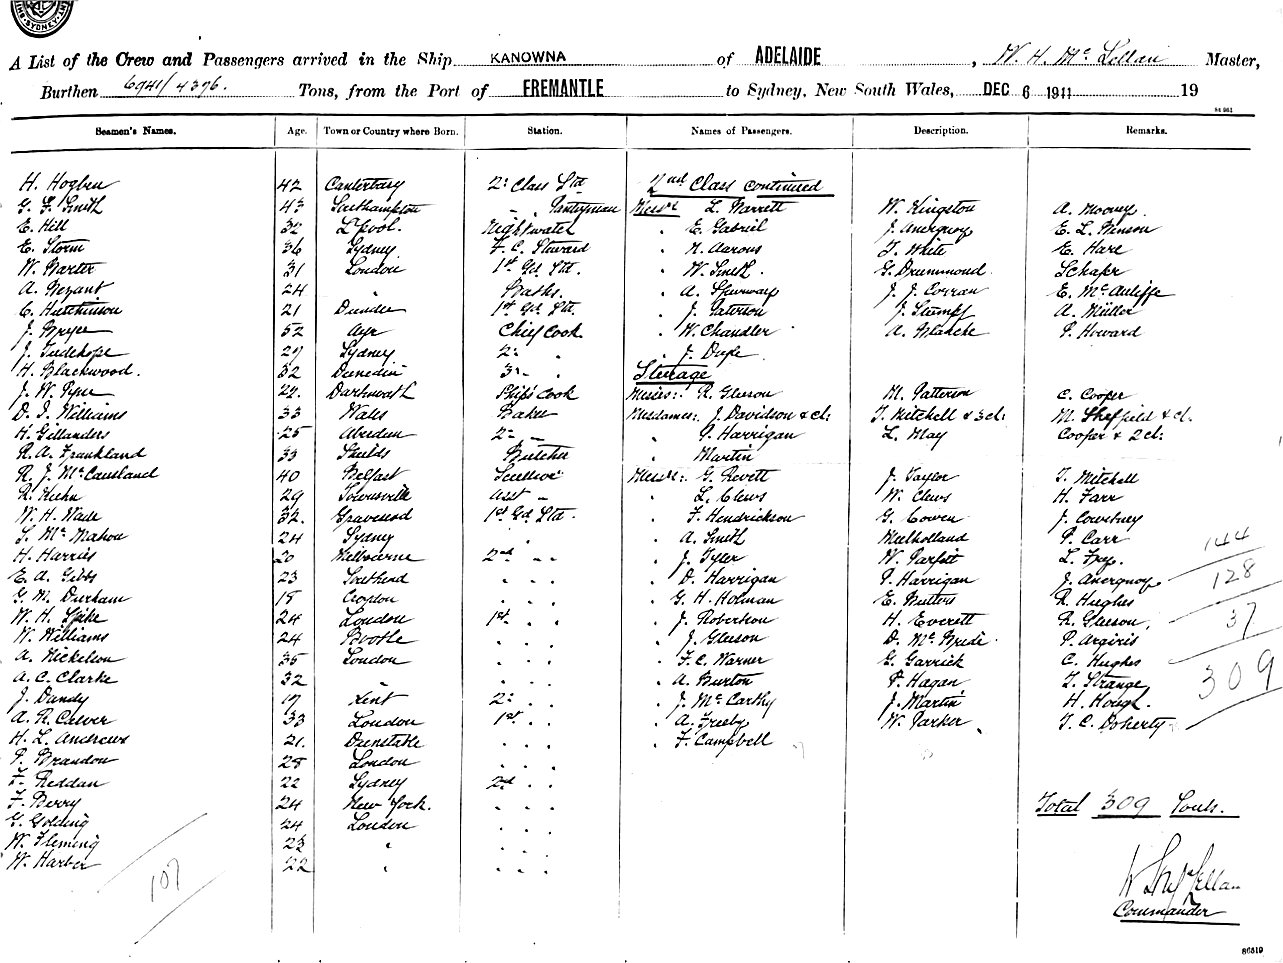 SYDNEY
A List of the Crew and Passengers arrived in the Ship KANOWNA of ADELAIDE, W. H. Mc Lellan Master,
Burthen 6941/4376. Tons, from the Port of FREMANTLE to Sydney, New South Wales, DEC 6 1911 19
Seamen's Names. Age. Town or Country where Born. Station. Names of Passengers. Description. Remarks.
H. Hogben 42 Canterbury 2: Class Std 2nd Class continued
G. F. Smith 43 Southampton " Pantryman Messrs L. Warrett W. Kingston A. Mooney
E. Hill 32 L'pool. Nightwater . E. Gabriel J. Anergnoy E. L. Benson
E. Storm 36 Sydney F. C. Steward . N. Aarons T. White E. Hare
W. Barter 31 London 1st Gd. Std. . W. Smith. G. Drummond. Schafer
A. Bezant 24 " Baths. . A. Spurway J. J. Corran E. McAuliffe
C. Hutchinson 21 Dundee 1st Gd. Std. . J. Paterson J. Stumpf A. Müller
J. Bryce 52 Ayr Chief Cook. . W. Chandler A. Blanche P. Howard
J. Tudehope 27 Sydney 2: . . J. Dupe.
H. Blackwood. 32 Dunedin 3: . Steerage
J. W. Pyne 22. Darkwath Ship's Cook Messrs: R. Gleeson M. Patterson C. Cooper
D. J. Williams 33 Wales Baker Mesdames: J. Davidson & ch: T. Mitchell & 3 ch: M. Sheffield & ch.
H. Gillanders 25 Aberdeen 2: " . P. Harrigan L. May Cooper & 2 ch:
R. A. Frankland 33 Shields Butcher . Martin
R. J. McCausland 40 Belfast Scullion Messrs: G. Revett J. Taylor T. Mitchell
R. Huhn 29 Townsville Asst " . L. Clews W. Clews H. Farr
W. H. Wade 32. Gravesend 1st Gd. Std. . F. Hendrickson G. Cowen J. Courtney
S. McMahon 24 Sydney . A. Smith Mulholland P. Carr
H. Harris 20 Melbourne 2nd " " . J. Tyler W. Parfitt L. Fry. 144
E. A. Gibbs 23 Southend . . . . D. Harrigan P. Harrigan J. Anergnoy. 128
G. M. Durham 18 Croydon . . . . G. H. Holman E. Butters R. Hughes
W. H. Spike 24 London 1st . . . J. Robertson H. Everett R. Gleeson, 37
W. Williams 24 Bootle . . . . J. Gleeson D. McBride. P. Argiris
A. Nickelson 35 London . . . . F. C. Warner G. Garrick C. Hughes
A. C. Clarke 32 " . . . . A. Burton P. Hagan T. Strange 309
J. Dandy 17 Kent 2: . . . J. McCarthy J. Martin H. Hough.
A. R. Culver 33 London 1st . . . A. Freeby W. Parker T. C. Doherty
H. L. Andrews 21. Dunstable . . . . F. Campbell
P. Brandon 28 London . . .
F. Reddan 22 Sydney 2nd . .
F. Berry 24 New York. . . . Total 309 Souls.
G. Golding 24 London . . .
W. Fleming 23 " . . .
W. Harber 22 " . . .
107
W H McLellan
Commander
86519